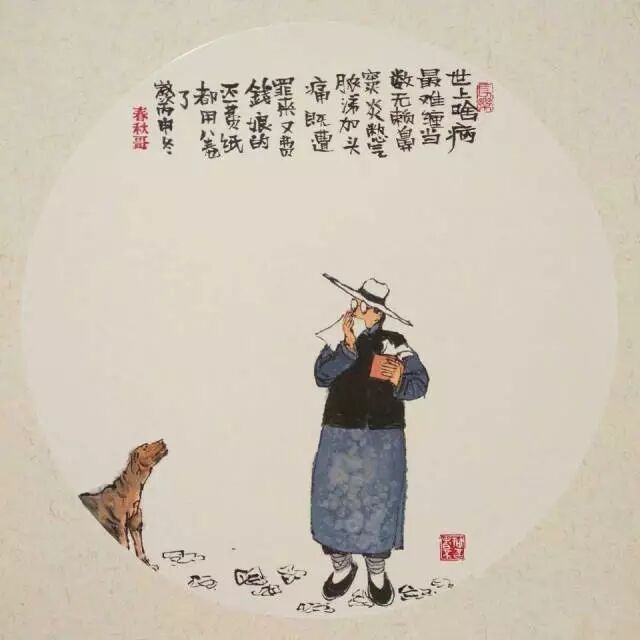 世上啥病
最难缠当
数无赖鼻
窦炎憋气
脓涕加头
痛既遭
罪来又费
钱娘的
还费纸
都用八卷
了
丙申冬
春秋哥